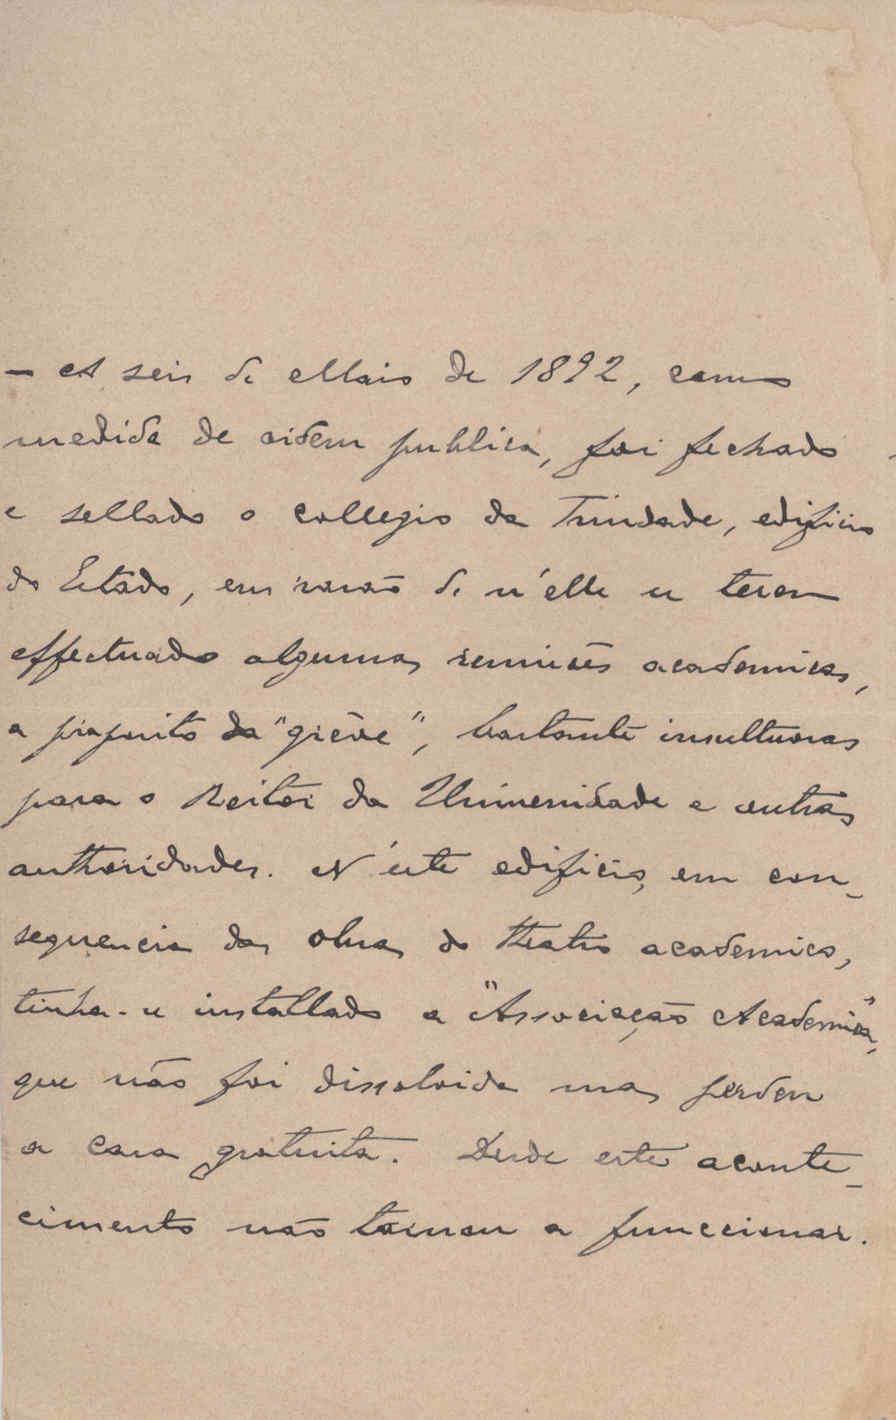 — A seis de Maio de 1892, como
medida de ordem publica, foi fechado
e sellado o collegio da Trindade, edificio
do Estado, em rasão de n'elle se terem
effectuado algumas reuniões academicas,
a proposito da "grève", bastante insultuosas
para o Reitor da Universidade e outras
authoridades. N'este edificio, em con_
sequencia das obras do theatro academico,
tinha-se installado a "Associação Academica",
que não foi dissolvida mas perdeu
a casa gratuita. Desde este aconte_
cimento não tornou a funccionar.